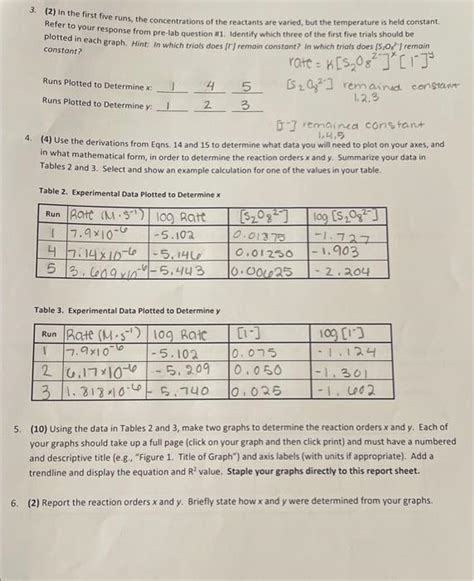 3. (2) In the first five runs, the concentrations of the reactants are varied, but the temperature is held constant.
Refer to your response from pre-lab question #1. Identify which three of the first five trials should be
plotted in each graph. Hint: In which trials does [I⁻] remain constant? In which trials does [S₂O₈²⁻] remain
constant?
rate = K[S₂O₈²⁻]ˣ[I⁻]ʸ
Runs Plotted to Determine x: 1 4 5
[S₂O₈²⁻] remained constant
1,2,3
Runs Plotted to Determine y: 1 2 3
[I⁻] remained constant
1,4,5
4. (4) Use the derivations from Eqns. 14 and 15 to determine what data you will need to plot on your axes, and
in what mathematical form, in order to determine the reaction orders x and y. Summarize your data in
Tables 2 and 3. Select and show an example calculation for one of the values in your table.
Table 2. Experimental Data Plotted to Determine x
Run Rate (M·s⁻¹) log Rate [S₂O₈²⁻] log [S₂O₈²⁻]
1 7.9x10⁻⁶ -5.102 0.01875 -1.727
4 7.14x10⁻⁶ -5.146 0.01250 -1.903
5 3.609x10⁻⁶ -5.443 0.00625 -2.204
Table 3. Experimental Data Plotted to Determine y
Run Rate (M·s⁻¹) log Rate [I⁻] log [I⁻]
1 7.9x10⁻⁶ -5.102 0.075 -1.124
2 6.17x10⁻⁶ -5.209 0.050 -1.301
3 1.818x10⁻⁶ -5.740 0.025 -1.602
5. (10) Using the data in Tables 2 and 3, make two graphs to determine the reaction orders x and y. Each of
your graphs should take up a full page (click on your graph and then click print) and must have a numbered
and descriptive title (e.g., "Figure 1. Title of Graph") and axis labels (with units if appropriate). Add a
trendline and display the equation and R² value. Staple your graphs directly to this report sheet.
6. (2) Report the reaction orders x and y. Briefly state how x and y were determined from your graphs.